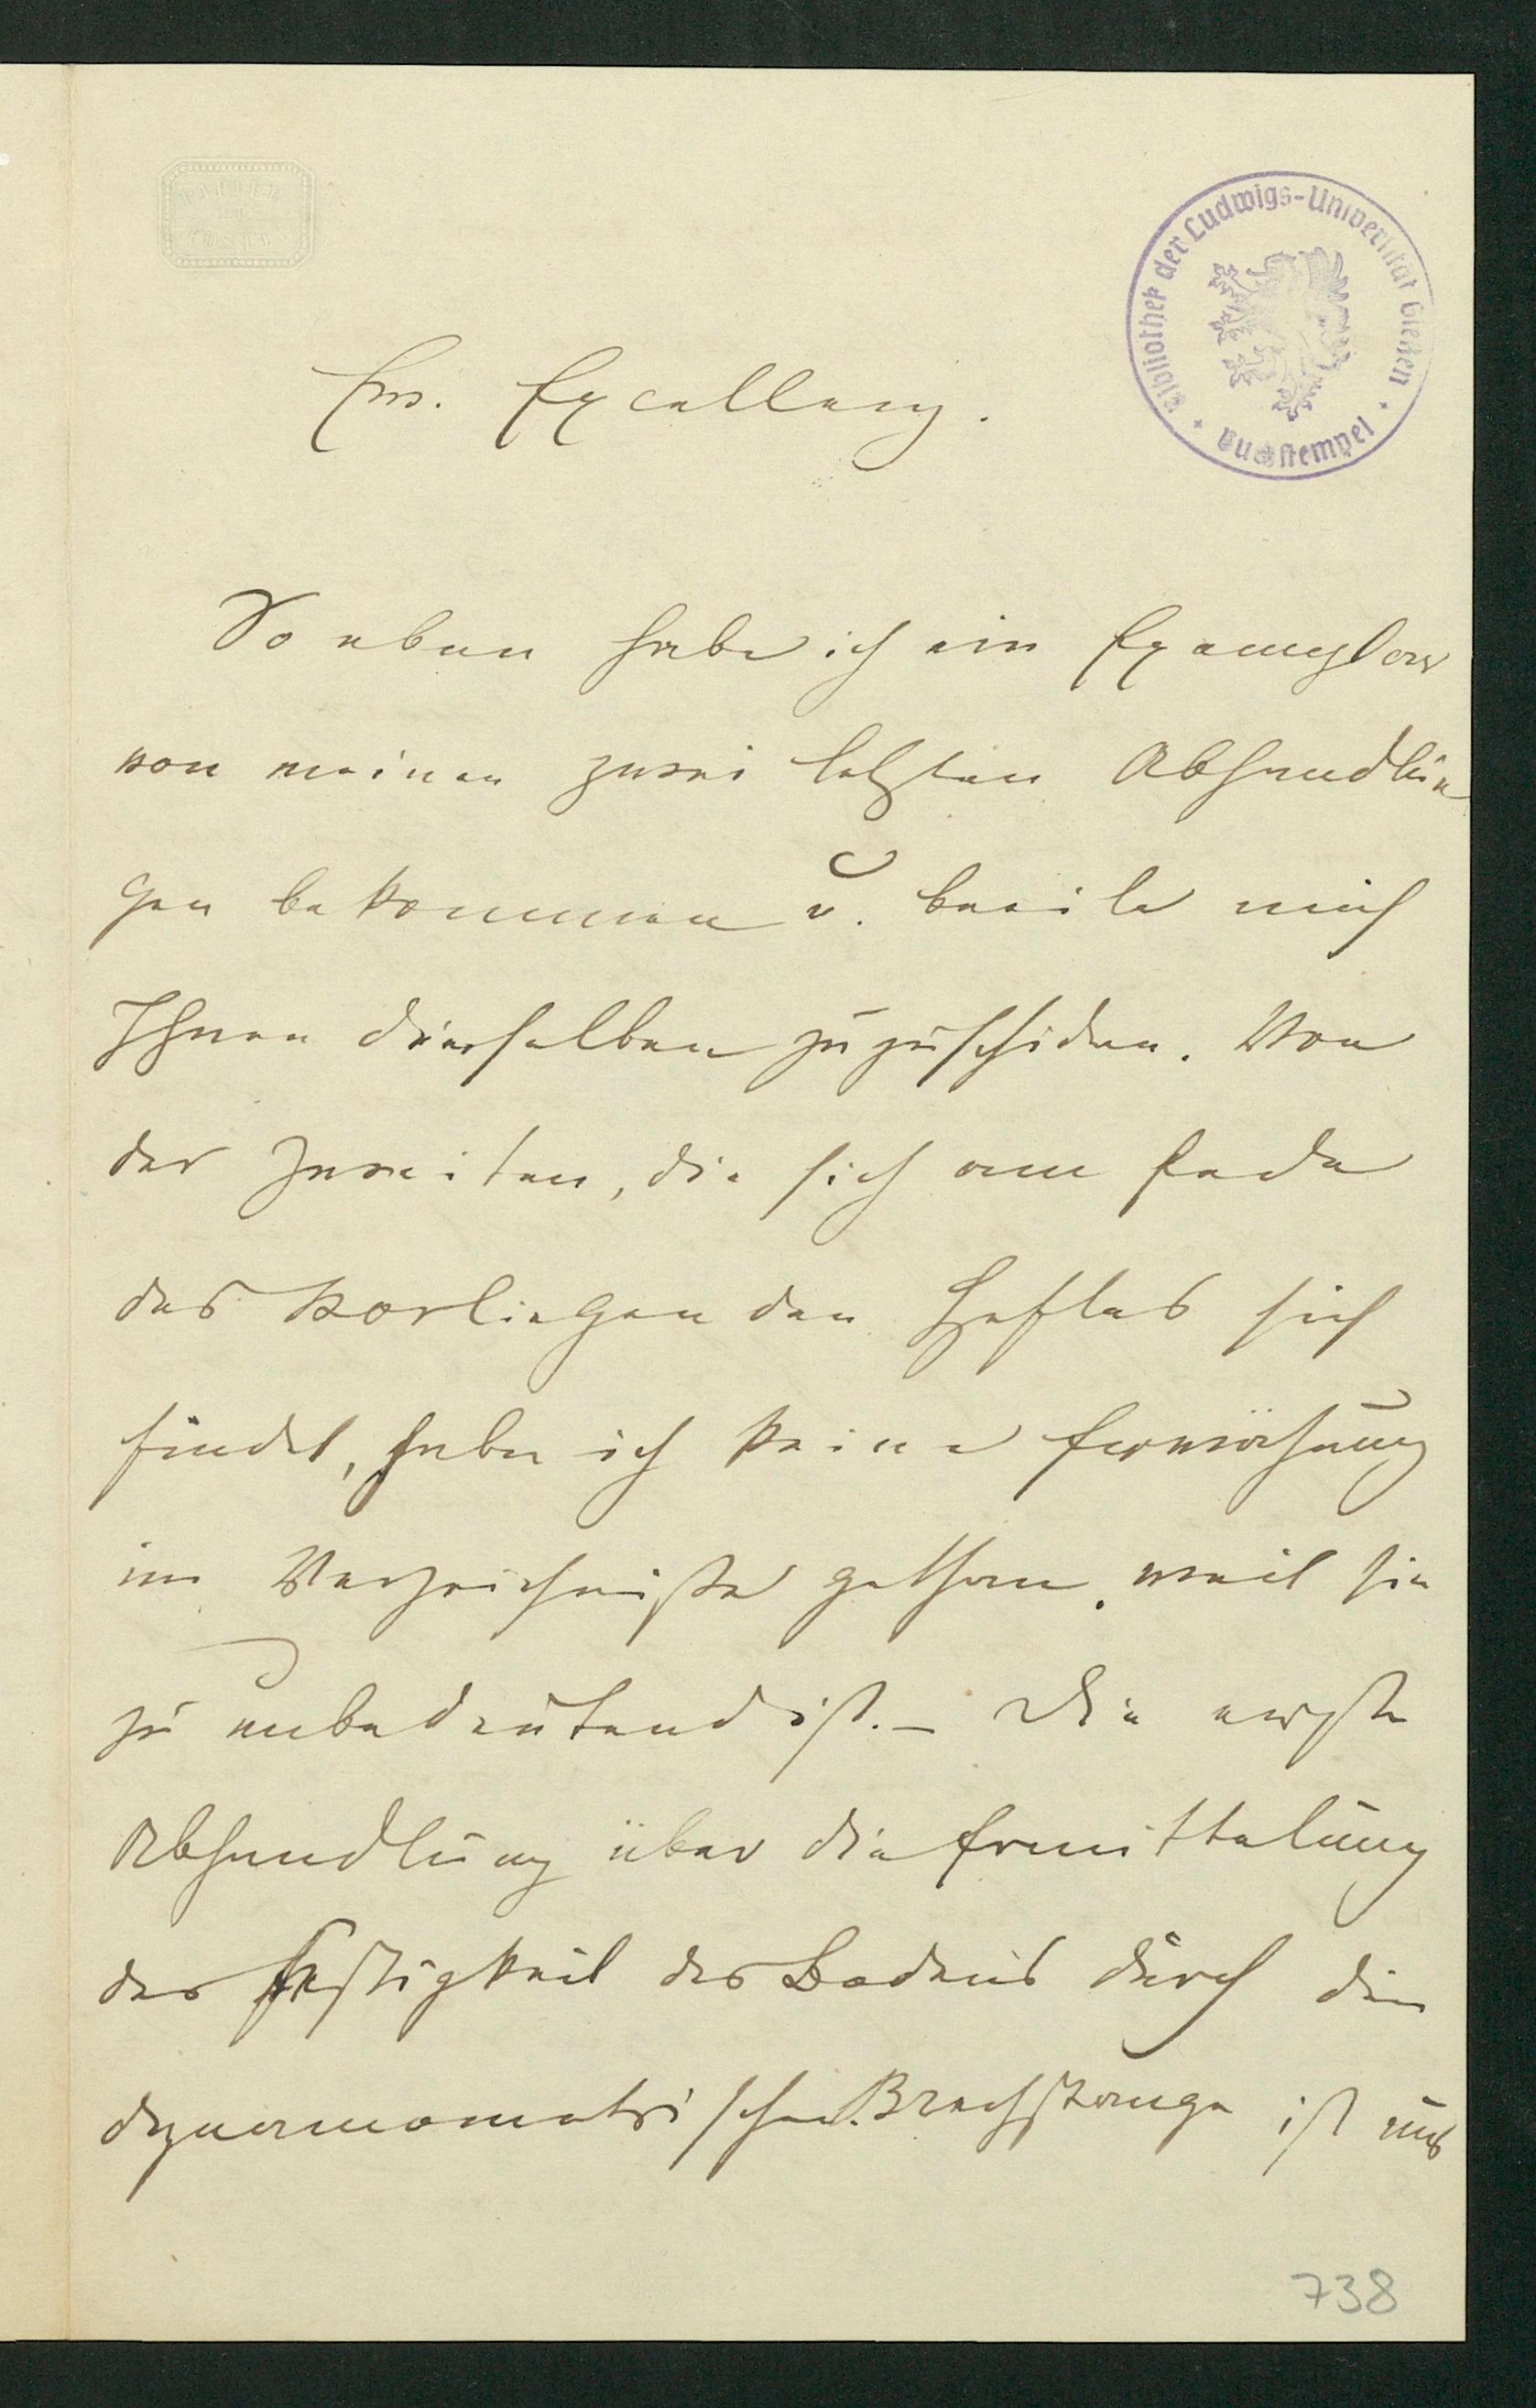 Bibliothek der Ludwigs-Universität Gießen
Buchstempel
Ew. Excellenz.
So eben habe ich ein Exemplar
von meinen zwei letzten Abhandlun
gen bekommen u. beeile mich
Ihnen dieselben zuzuschicken. Von
der zweiten, die sich am Ende
des vorliegenden Heftes sich
findet, habe ich keine Erwähnung
im Verzeichniße gethan, weil sie
zu unbedeutend ist. – Die erste
Abhandlung über die Ermittelung
der Festigkeit des Bodens durch die
dynamometrische Brechstange ist uns
738